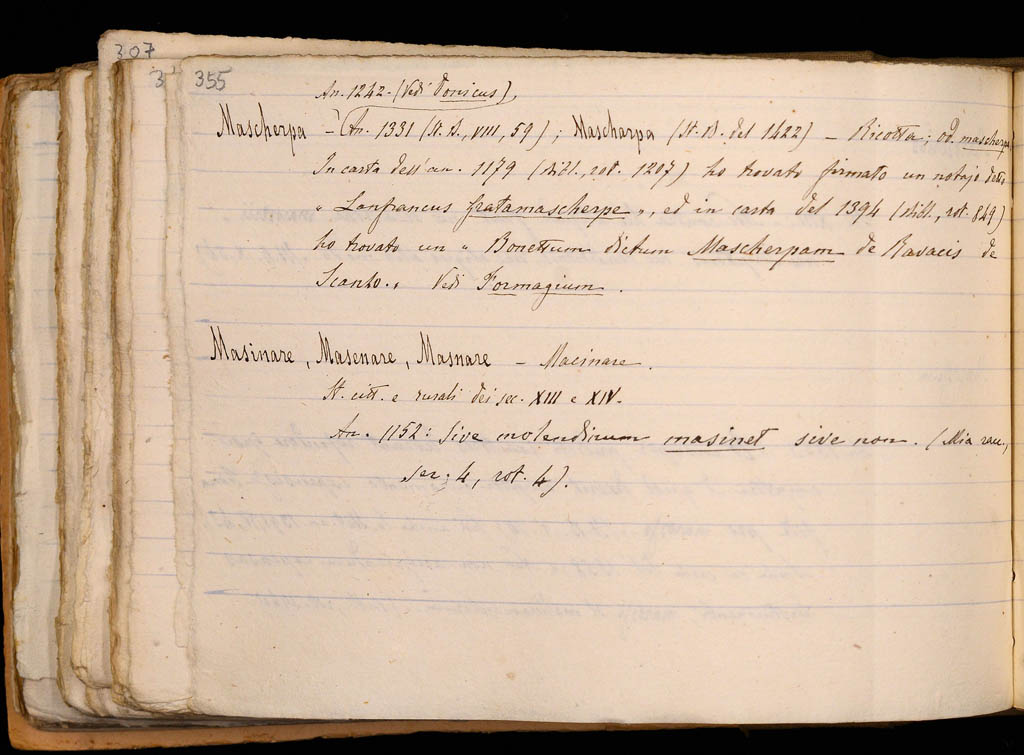 307
3
355
An. 1242. (Vedi Donicus).
Mascherpa – (An. 1331 (St. A., VIII, 59); Mascharpa (St. B. del 1422) – Ricotta; od. mascherpa
In carta dell'an. 1179 (Bibl., rot. 1207) ho trovato firmato un notajo detto
„ Lanfrancus gratamascherpe „, ed in carta del 1394 (Bibl., rot. 849)
ho trovato un „ Bonettum dictum Mascherpam de Ravacis de
Scanzo. „ Vedi Formagium.
Masinare, Masenare, Masnare – Macinare.
St. citt. e rurali dei sec. XIII e XIV.
An. 1152: Sive molendinum masinet sive non. (Mia rac.,
ser. 4, rot. 4).